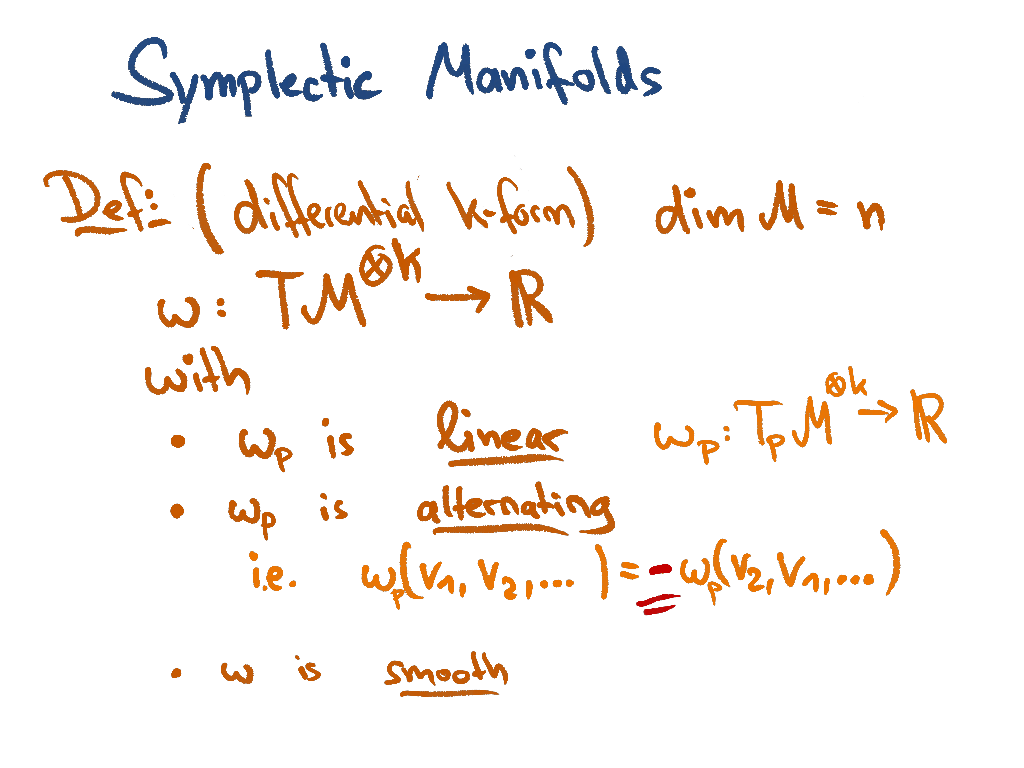 Symplectic Manifolds
Def: (differential k-form) dim M = n
ω: TM^⊗k → ℝ
with
• ω_p is linear ω_p: T_pM^⊗k → ℝ
• ω_p is alternating
i.e. ω_p(v₁, v₂, ...) = - ω_p(v₂, v₁, ...)
• ω is smooth